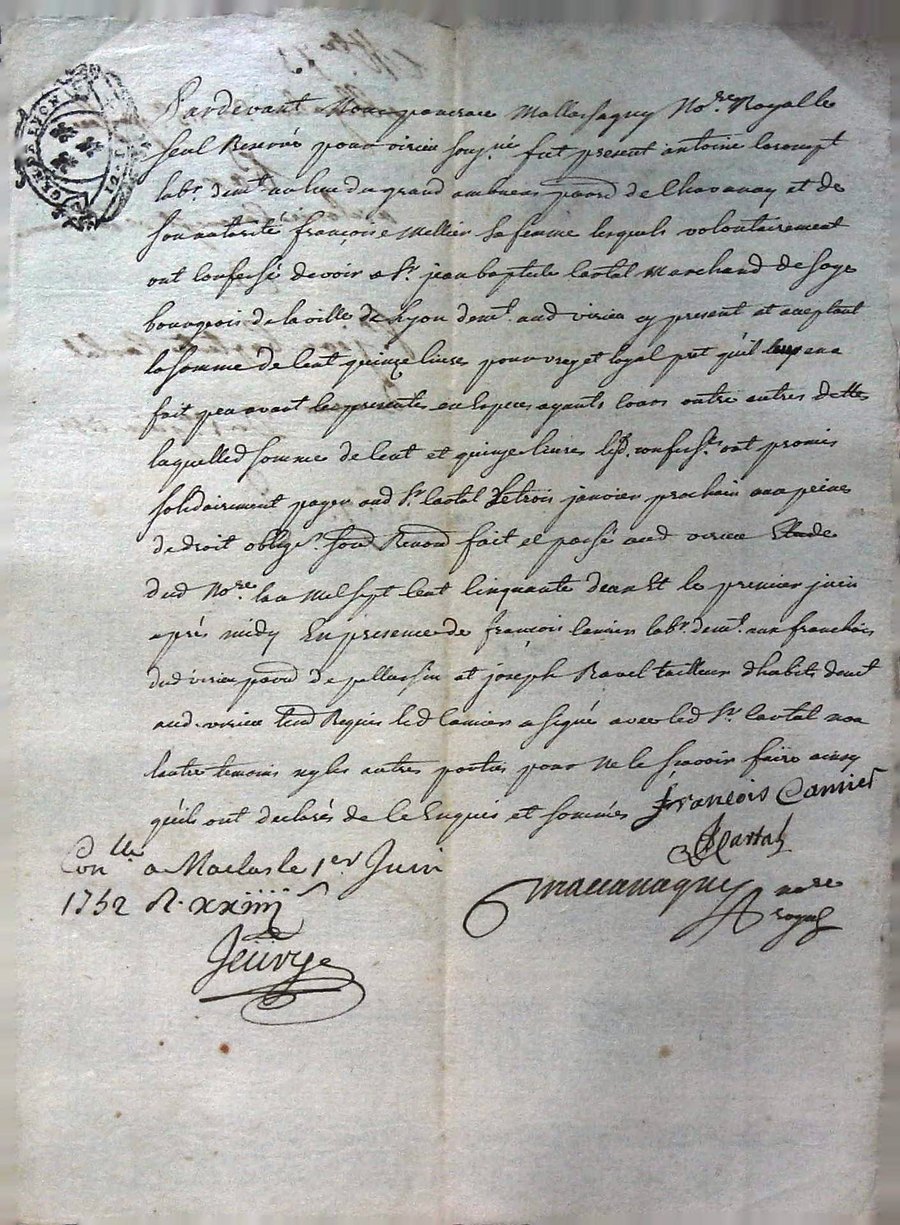 Pardevant Nous Mallassagny No.re Royalle
seul Reservé pour virieu sousg.né fut present antoine
lab.r dem.t au lieu du grand parr.d de Chavanay et de
son autorité françoise Mellier sa femme lesquels volontairement
ont confessé devoir a S.r jean baptiste Cartal Marchand de soye
bourgeois de la ville de Lyon dem.t aud virieu cy present et aceptant
la somme de Cent quinze livres pour vray et loyal pret qu'il leur en a
fait peu avant les presentes en especes ayants cours outre autres dettes
laquelled somme de Cent et quinze livres led. confess.ts ont promis
solidairement payer aud S.r Cartal Le trois janvier prochain aux peines
de droit oblig.t fait et passé aud virieu Etude
dud No.re l'an Mil sept Cent Cinquante deux Et le premier juin
après midy En presence de françois Camier lab.r dem.t aux franchises
dud virieu parr.d de pellussin et joseph Ravel tailleur d'habits dem.t
aud. virieu Requis led Camier a signé avec led S.r Cartal non
l'autre temoins ny les autres parties pour ne le scavoir faire ainsy
qu'ils ont declarés de ce Enquis et sommés françois Camier
Cartal
Con.lle a Maclas le 1er Juin
1752 R. xxiiii s
no.re
royal